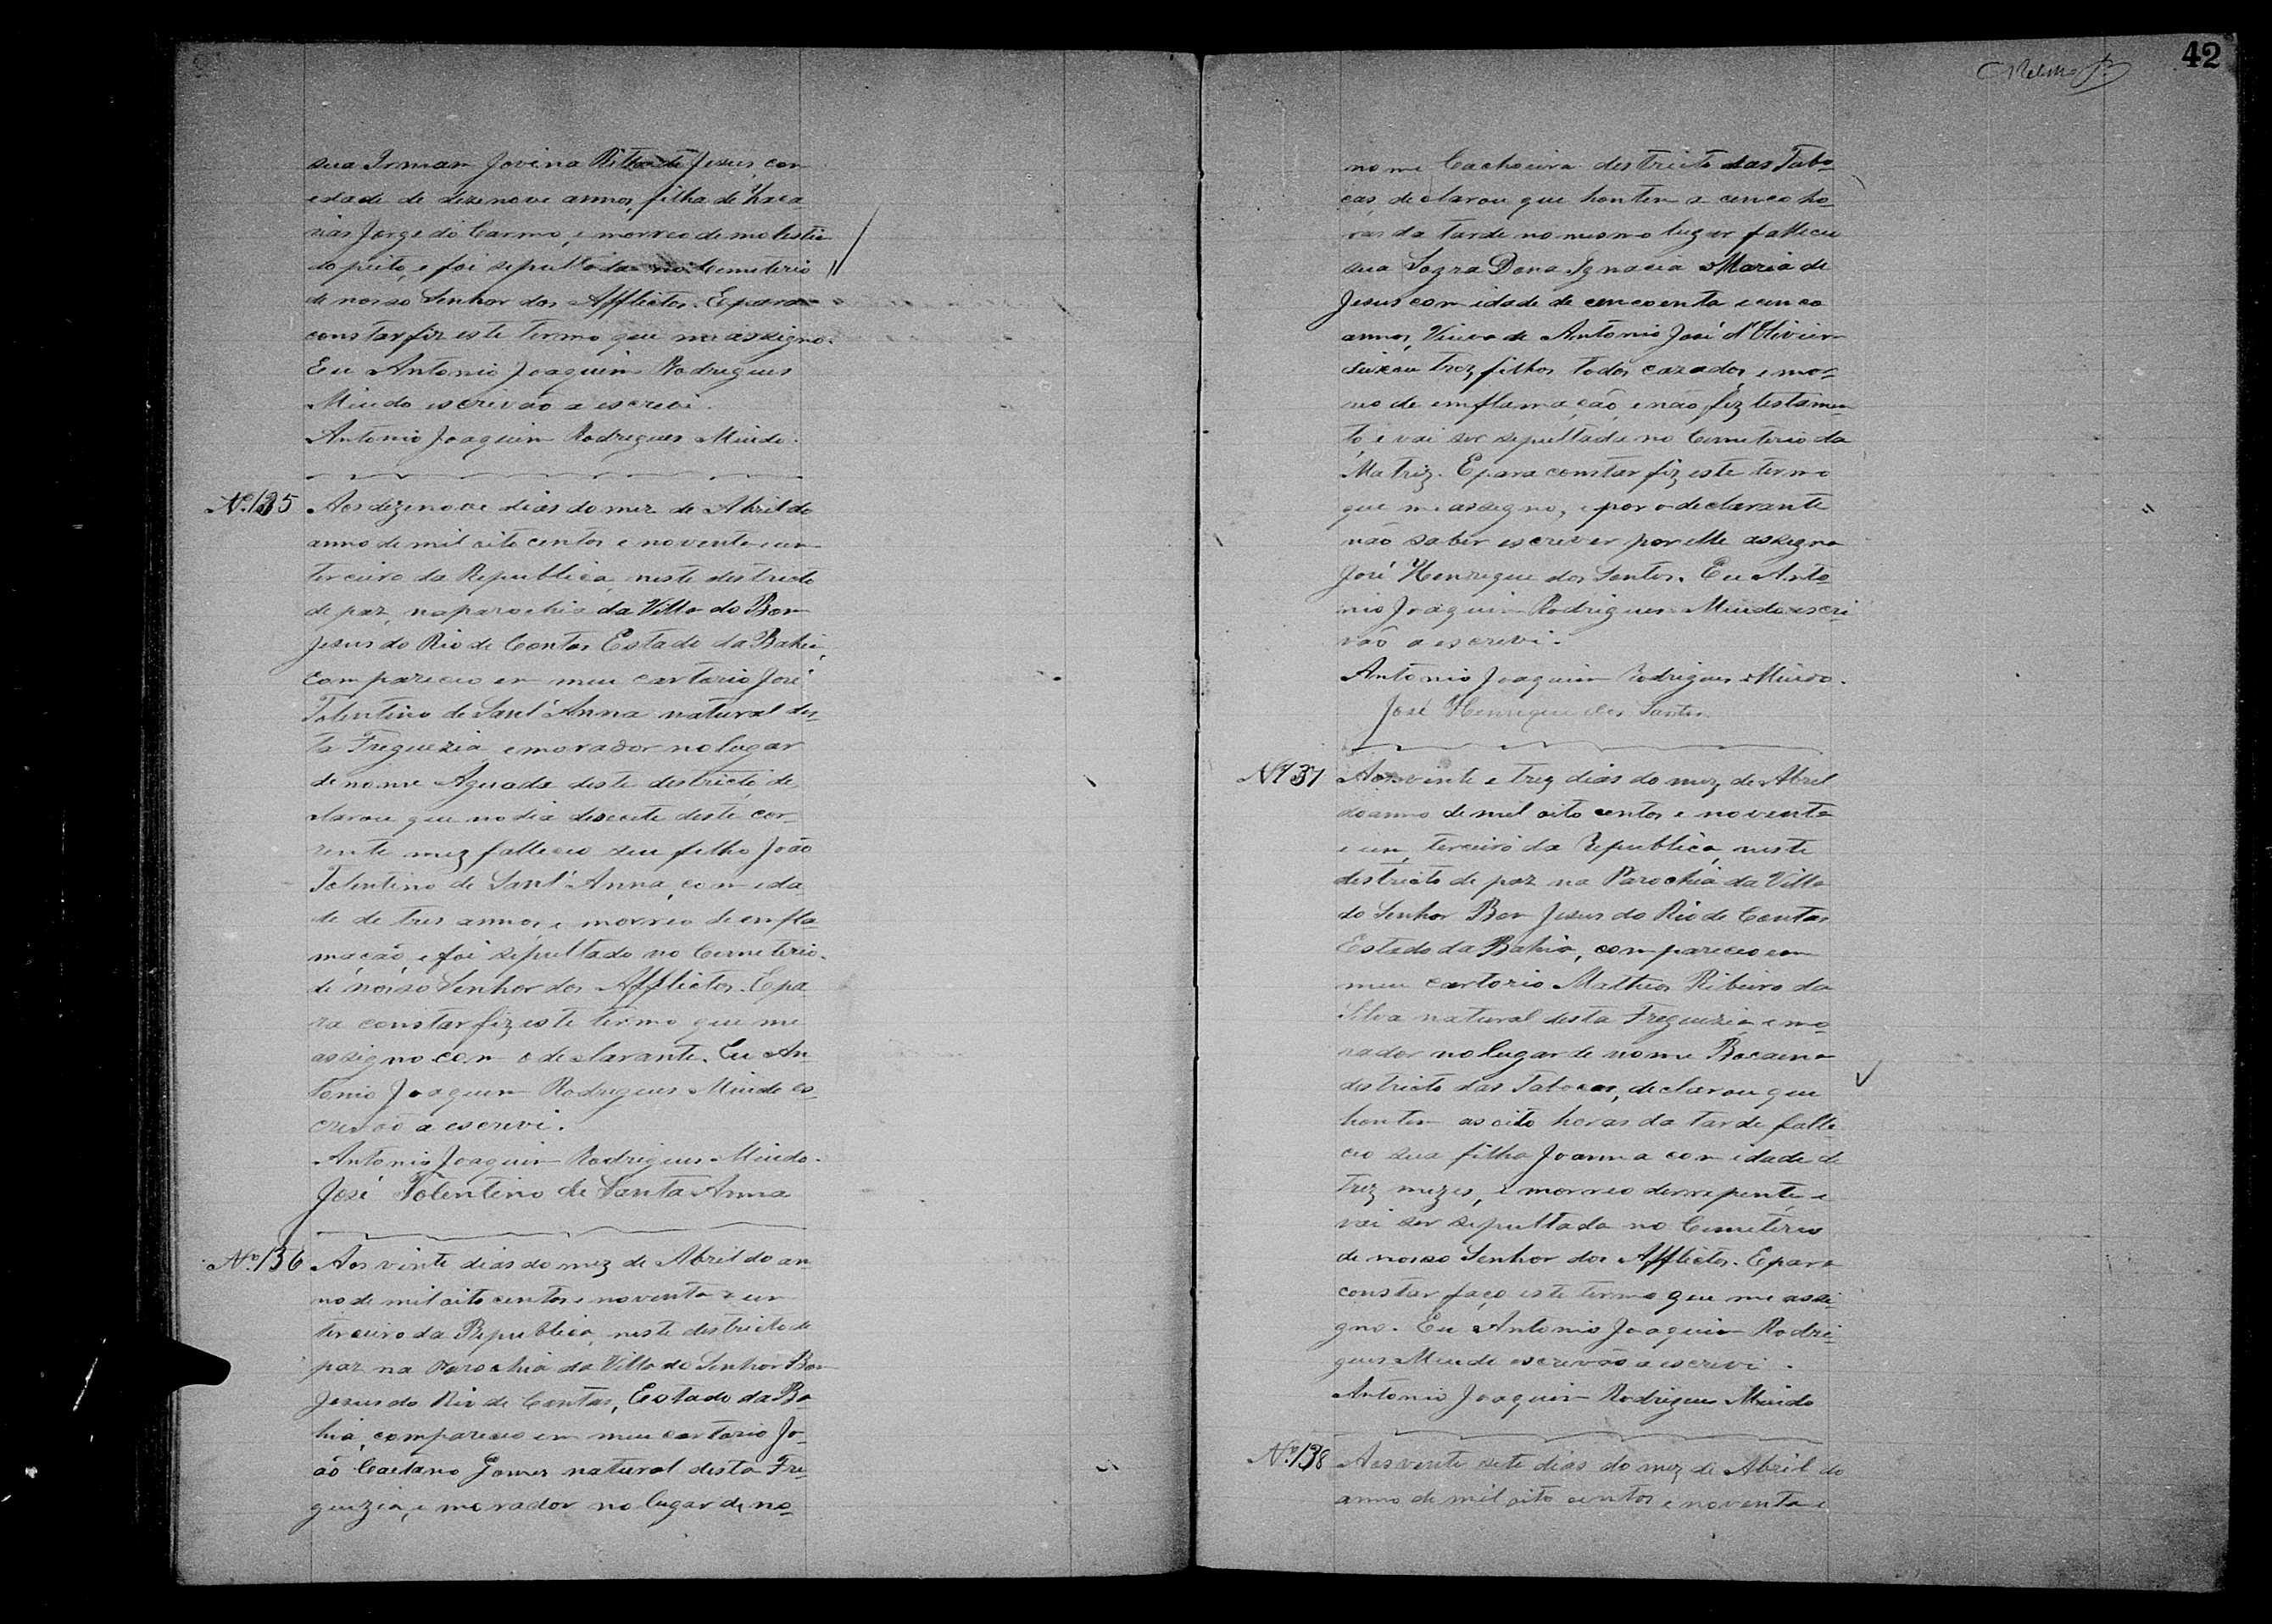 sua Irman Jovina Ritta de Jesus, com
edade de dezenove annos, filha de Zaca
rias Jorge do Carmo, e morreo de molestia
do peito, e foi sepultada no Cemeterio
de nosso Senhor dos Afflictos. E para
constar fiz este termo que me assigno.
Eu Antonio Joaquim Rodrigues
Miudo escrivão a escrevi.
Antonio Joaquim Rodrigues Miudo.
Nº 135 Aos dezenove dias do mez de Abril do
anno de mil oito centos e noventa e um
terceiro da Republica, neste destricto
de paz, na parochia da Villa do Bom
Jesus do Rio de Contas Estado da Bahia,
compareceo em meu cartorio José
Tolentino de Sant'Anna natural des-
ta Freguezia e morador no lugar
de nome Aguada deste destricto, de
clarou que no dia desoite deste cor-
rente mez falleceo seu filho João
Tolentino de Sant'Anna, com eda
de de tres annos, e morreo de enfla
mação, e foi sepultado no Cemeterio
de nosso Senhor dos Afflictos. E pa-
ra constar fiz este termo que me
assigno com o declarante. Eu An-
tonio Joaquim Rodrigues Miudo es-
crivão a escrevi.
Antonio Joaquim Rodrigues Miudo.
José Tolentino de Santa Anna
Nº 136 Aos vinte dias do mez de Abril do an-
no de mil oito centos e noventa e um
terceiro da Republica, neste destricto de
paz na Parochia da Villa do Senhor Bom
Jesus do Rio de Contas, Estado da Ba-
hia, compareceo em meu cartorio Jo-
ão Caetano Gomes natural desta Fre-
guezia, e morador no lugar de no-
42
nome Cachoeira destricto das Tabo-
cas, declarou que hontem a cenco ho-
ras da tarde no mesmo lugar falleceu
sua Sogra Dona Ignacia Maria de
Jesus com idade de cencoenta e cenco
annos, Viuva de Antonio José d'Oliveira
deixou trez filhos todos cazados, e mor-
reo de emflamação, e não fez testamen
to, e vai ser sepultada no Cemeterio da
Matriz. E para constar fiz este termo
que me assegno, e por o declarante
não saber escrever por elle assegna
José Henrique dos Santos. Eu Anto-
nio Joaquim Rodrigues Miudo escri-
vão a escrevi.
Antonio Joaquim Rodrigues Miudo.
José Henrique dos Santos
Nº 137 Aos vinte e trez dias do mez de Abril
do anno de mil oito centos e noventa
e um, terceiro da Republica, neste
destricto de paz na Parochia da Villa
do Senhor Bom Jesus do Rio de Contas
Estado da Bahia, compareceo em
meu cartorio Matheos Ribeiro da
Silva natural desta Freguezia e mo-
rador no lugar de nome Bocaina
destricto das Tabocas, declarou que
hontem as oito horas da tarde falle-
ceo sua filha Joanna com idade de
trez mezes, e morreo derrepente, e
vai ser sepultada no Cemeterio
de nosso Senhor dos Afflictos. E para
constar faço este termo que me assi-
gno. Eu Antonio Joaquim Rodri-
gues Miudo escrivão a escrevi.
Antonio Joaquim Rodrigues Miudo
Nº 138 Aos vente sete dias do mez de Abril do
anno de mil oito centos e noventa e